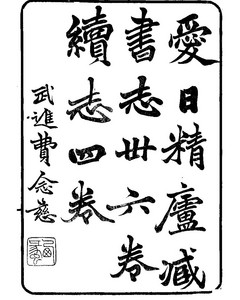 愛日精廬藏
書志卅六卷
續志四卷
武進費念慈